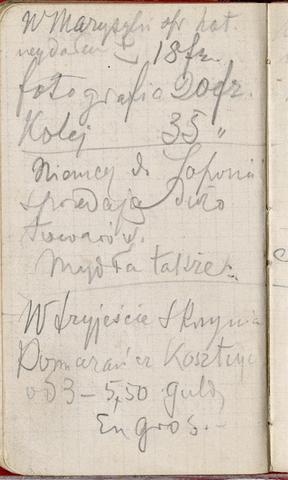 W Marsylii spr. kat.
wydałem 18 fr.
fotografia 20 fr.
Kolej 35 "
Niemcy do Japonii
sprzedają dużo
towarów.
Mydła także.
W Tryjeście Skrzynia
Pomarańcz Kosztuje
od 3 – 5,50 guld.
En gros. –